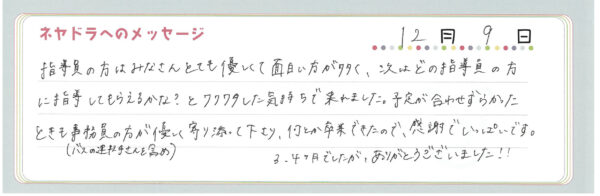 ネヤドラへのメッセージ
12月 9日
指導員の方はみなさんとても優しくて面白い方が多く、次はどの指導員の方
に指導してもらえるかな?とワクワクした気持ちで来れました。予定が合わせずらかった
ときも事務員の方が優しく寄り添って下さり、何とか卒業できたので、感謝でいっぱいです。
(バスの運転手さんも含め)
3.4ヶ月でしたが、ありがとうございました!!